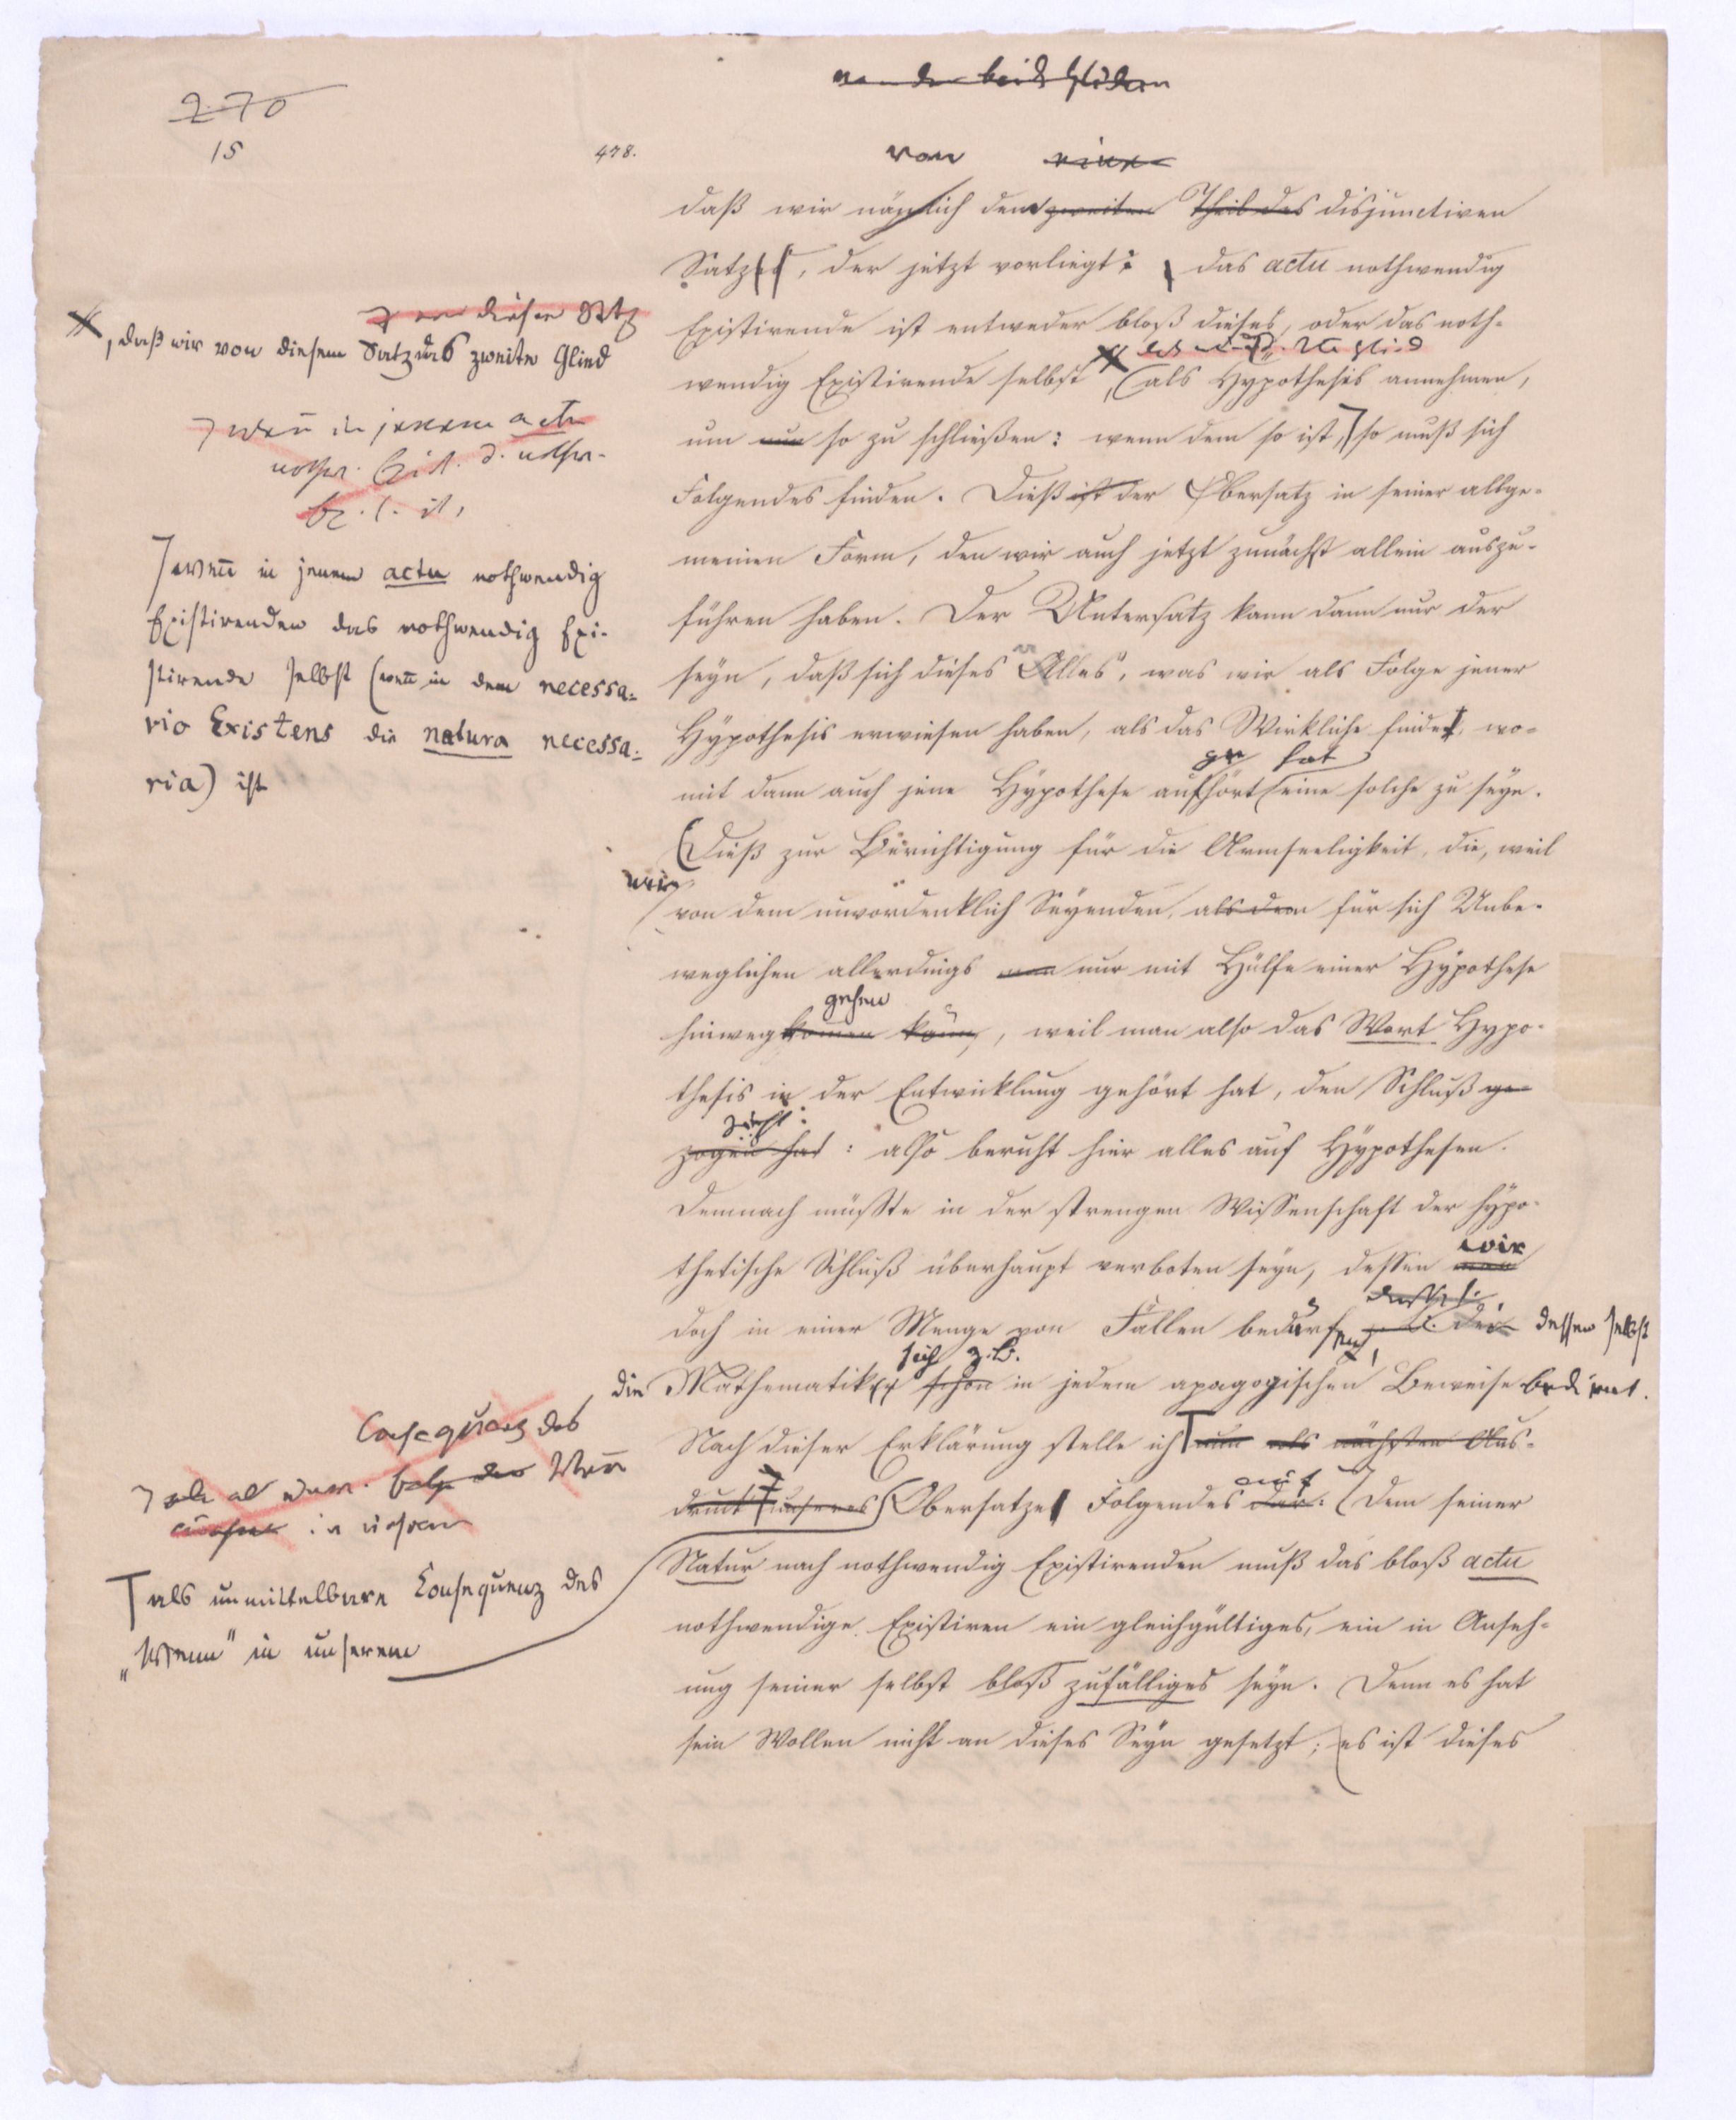 270
15
478.
von der beiden Gliedern
von
daß wir nämlich dem zweiten Theil des disjunctiven
Satzes, der jetzt vorliegt: das actu nothwendig
Existirende ist entweder bloß dieses, oder das noth-
wendig Existirende selbst, (als Hypothesis annehmen,
um nun so zu schließen: wenn dem so ist, so muß sich
Folgendes finden. Dieß ist der Obersatz in seiner allge-
meinen Form, den wir auch jetzt zunächst allein auszu-
führen haben. Der Untersatz kann dann nur der
seyn, daß sich dieses Alles, was wir als Folge jener
Hypothesis erwiesen haben, als das Wirkliche findet, wo-
ge hat
mit dann auch jene Hypothese aufhört eine solche zu seyn.
(Dieß zur Berichtigung für die Armseeligkeit, die, weil
wir
von dem unvordenklich Seyenden, als dem für sich Unbe-
weglichen allerdings man nur mit Hülfe einer Hypothese
gehen
hinwegkomen kann, weil man also das Wort Hypo-
thesis in der Entwicklung gehört hat, den Schluß ge-
zieht:
zogen hat: also beruht hier alles auf Hypothesen.
Demnach müßte in der strengen Wissenschaft der hypo-
thetische Schluß überhaupt verboten seyn, dessen man
wir
doch in einer Menge von Fällen bedürfen, z. B. der dessen selbst
sich z. B.
die Mathematiker schon in jedem apagogischen Beweise bedient.
Nach dieser Erklärung stelle ich nun als nächsten Aus-
druck unseres Obersatzes Folgendes dar: (Dem seiner
auf
Natur nach nothwendig Existirenden muß das bloß actu
nothwendige Existiren ein gleichgültiges, ein in Anseh-
ung seiner selbst bloß zufälliges seyn. Denn es hat
sein Wollen nicht an dieses Seyn gesetzt; es ist dieses
von diesem Satz
, daß wir von diesem Satz das zweite Glied
wenn in jenem actu
nothw. Exist. d. nothw.
Ex. s. ist,
wenn in jenem actu nothwendig
Existirenden das nothwendig Exi-
stirende selbst (wenn in dem necessa-
rio Existens die natura necessa-
ria) ist
Consequenz des
Wenn
in unserem
als unmittelbare Consequenz des
„Wenn" in unserem